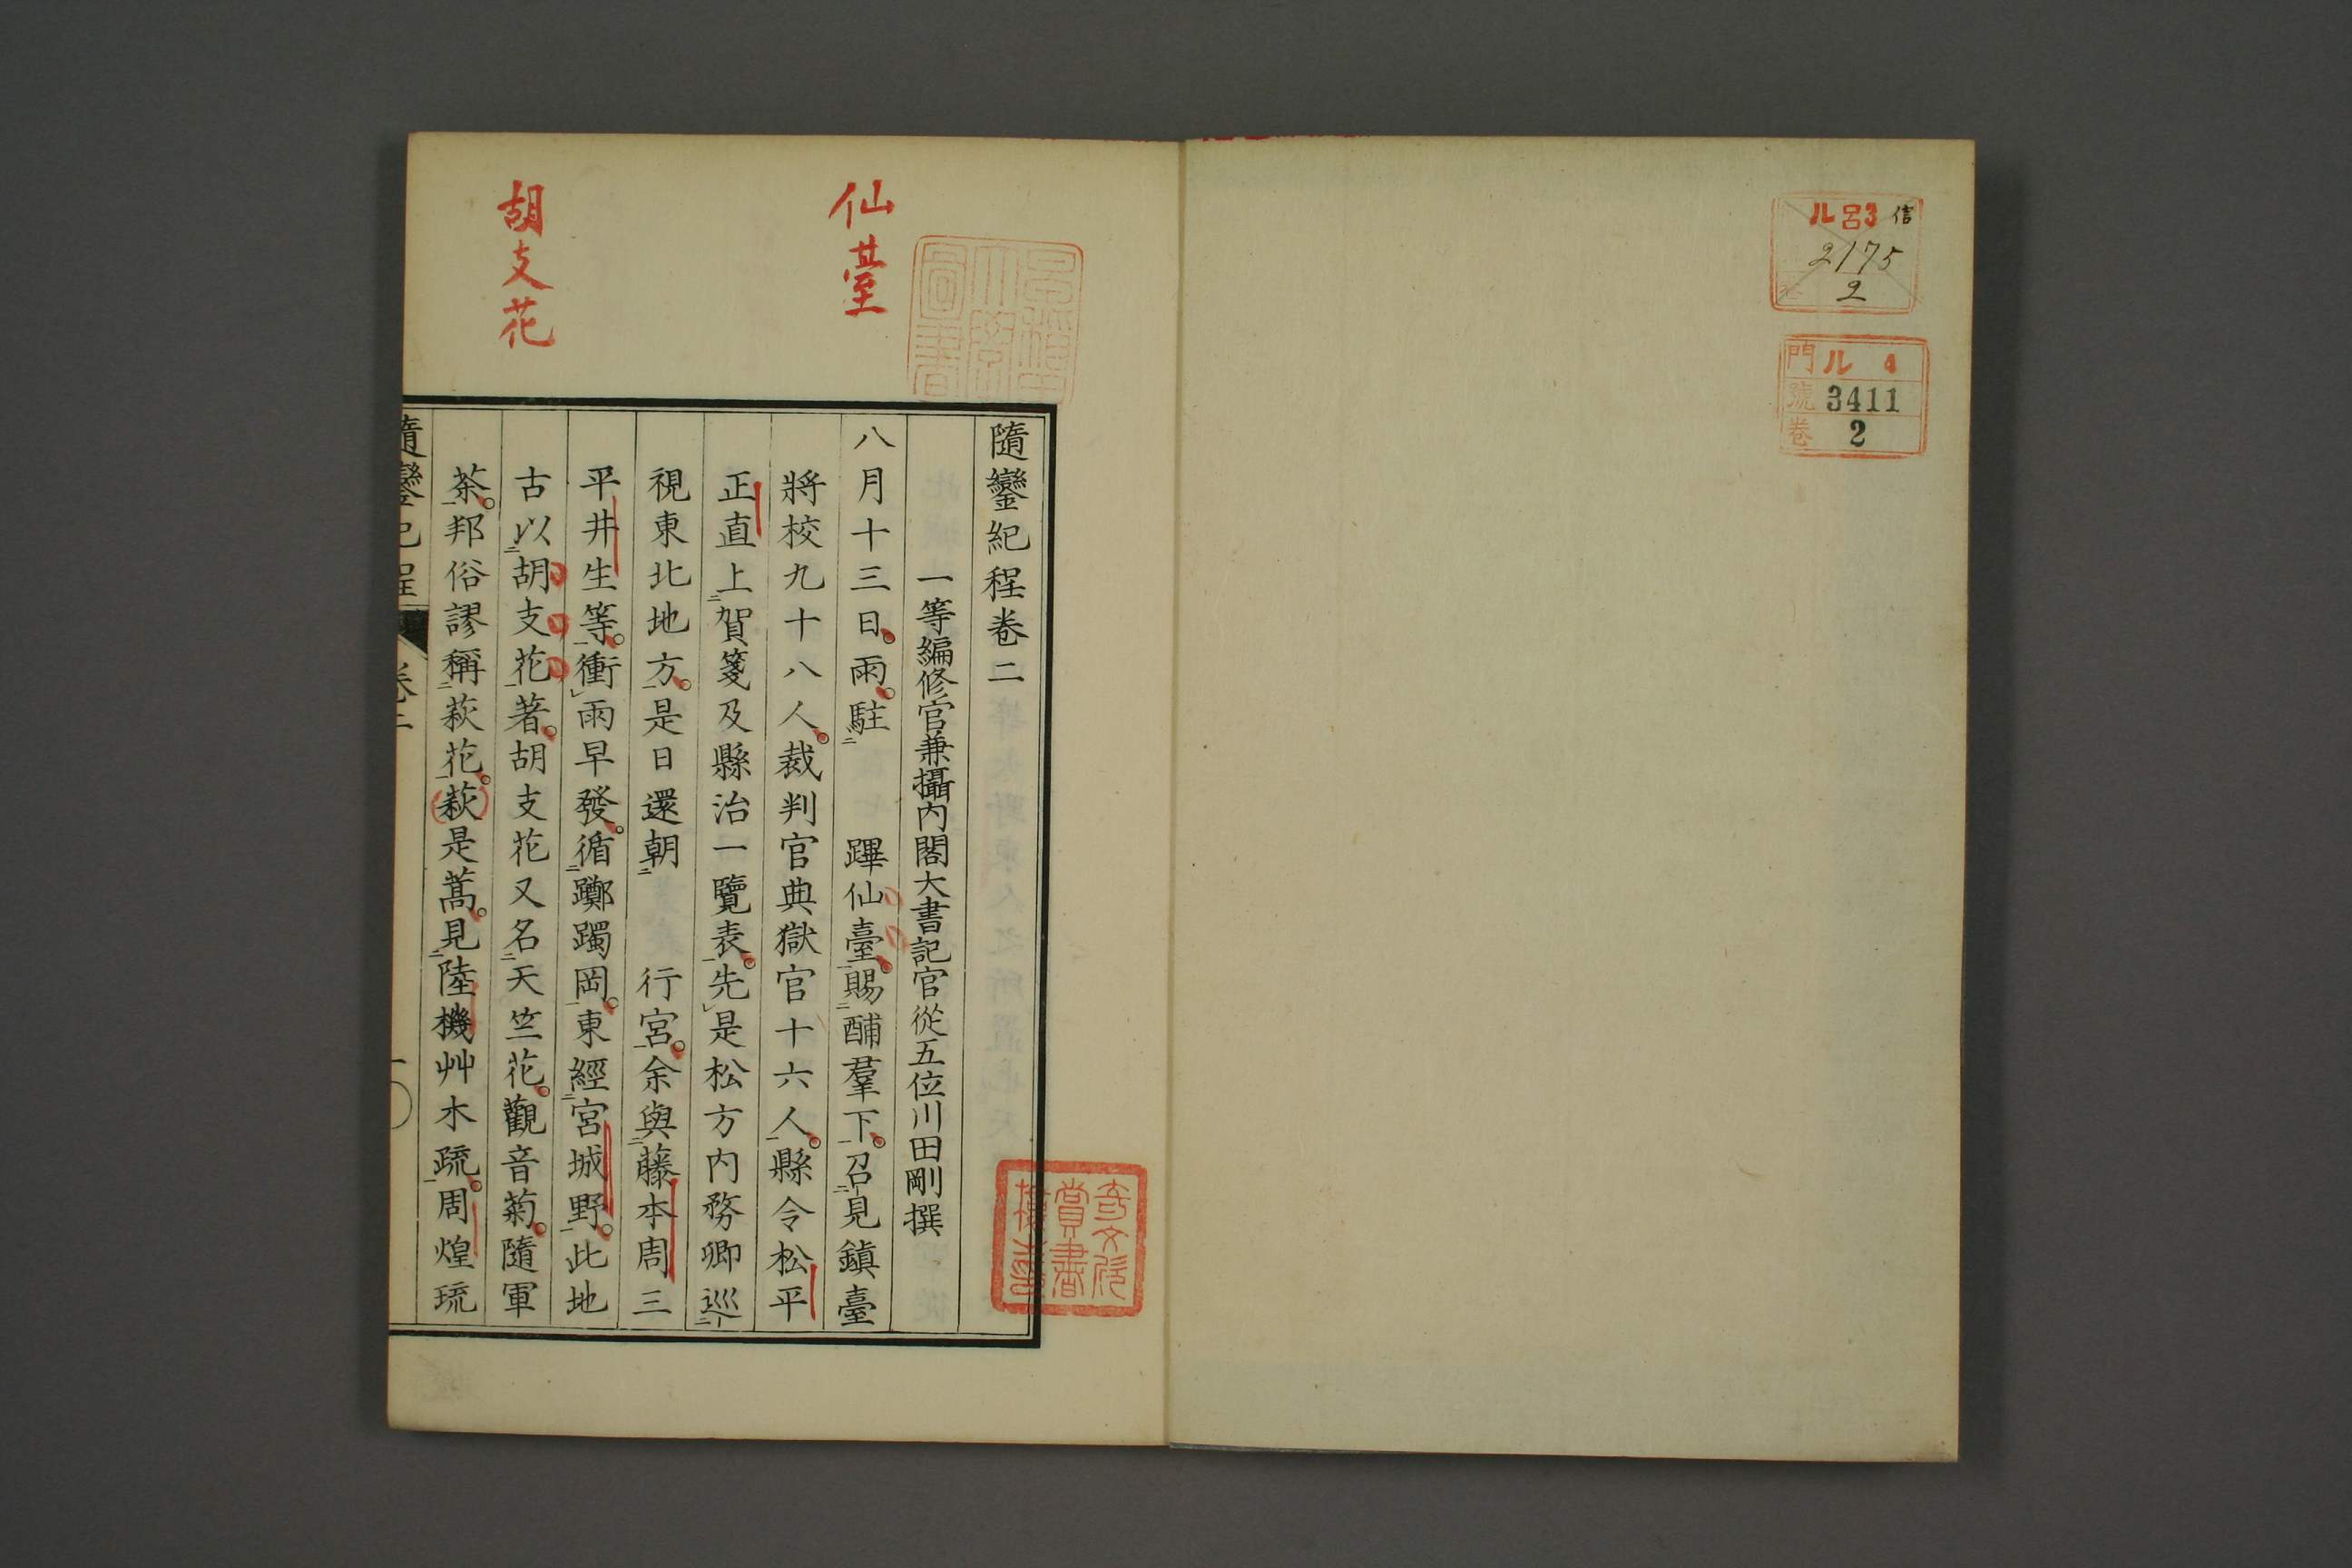 ル 呂3 信
2175
2
門 ル 4
號 3411
卷 2
仙臺
胡支花
隨鑾紀程卷二
一等編修官兼攝内閣大書記官從五位川田剛撰
八月十三日。雨。駐二 蹕仙臺一。賜二酺羣下一。召二見鎮臺
將校九十八人。裁判官典獄官十六人一。縣令松平
正直上二賀箋及縣治一覽表一。先レ是松方内務卿巡二
視東北地方一。是日還朝二 行宮一。余與二藤本周三
平井生等一。衝レ雨早發。循二躑躅岡一。東經二宮城野一。此地
古以二胡支花一著。胡支花又名二天竺花。觀音菊。隨軍
茶一。邦俗謬稱二萩花一。萩是蒿。見二陸機艸木疏一。周煌琉
隨鑾紀程 卷二 一
奇文欣
賞書